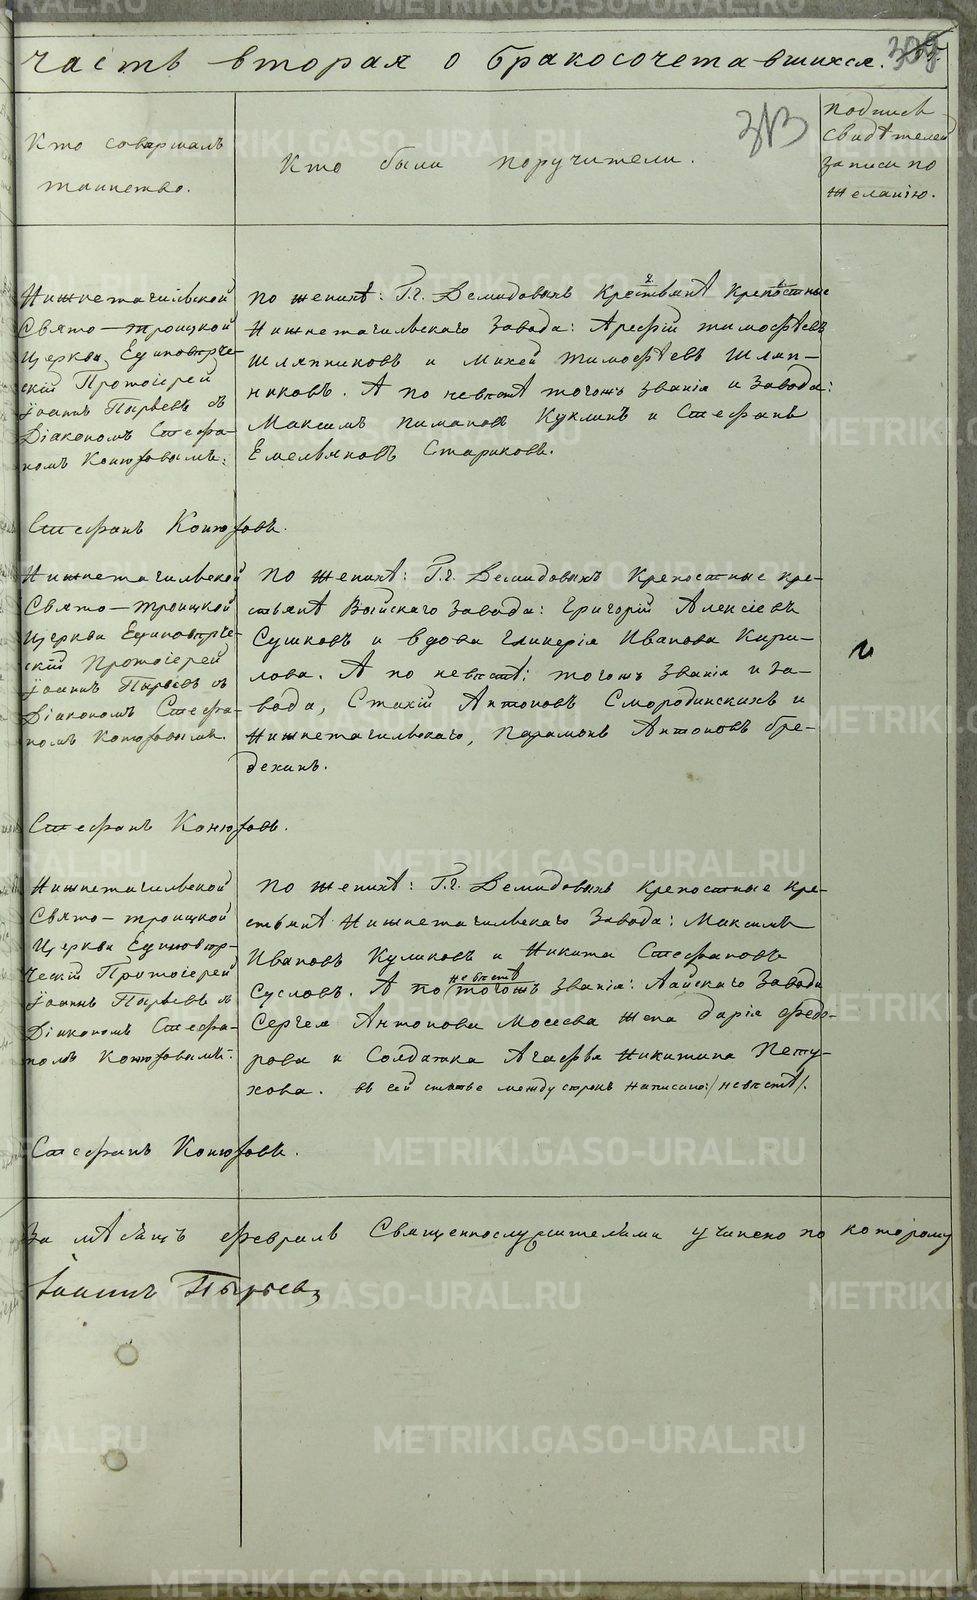 Часть вторая о бракосочетавшихся.
313
Кто совершалъ
таинство.
Кто были поручители.
Подпись
свидѣтелей
записи по
желанію.
Нижнетагильской
Свято-Троицкой
Церкви Единовѣрче-
скій Протоіерей
Іоаннъ Пырьевъ съ
Діакономъ Стефа-
номъ Конюховымъ.
По женихѣ: Г.г. Демидовыхъ крестьянѣ крепостные
Нижнетагильскаго завода: Арефій Тимофѣевъ
Шляпниковъ и Михей Тимофѣевъ Шляп-
никовъ. А по невѣстѣ тогожъ званія и завода:
Максимъ Пимановъ Куклинъ и Стефанъ
Емельяновъ Стариковъ.
Стефанъ Конюховъ.
Нижнетагильской
Свято-Троицкой
Церкви Единовѣрче-
скій Протоіерей
Іоаннъ Пырьевъ съ
Діакономъ Стефа-
номъ Конюховымъ.
По женихѣ: Г.г. Демидовыхъ крепостные кре-
стьянѣ Выйскаго завода: Григорій Алексіевъ
Сушковъ и вдова Гликерія Иванова Кири-
лова. А по невѣстѣ: тогожъ званія и за-
вода, Стахій Антоновъ Смородинскихъ и
Нижнетагильскаго, Парамонъ Антоновъ Бре-
дехинъ.
Стефанъ Конюховъ.
Нижнетагильской
Свято-Троицкой
Церкви Единовѣр-
ческій Протоіерей
Іоаннъ Пырьевъ съ
Діакономъ Стефа-
номъ Конюховымъ.
По женихѣ: Г.г. Демидовыхъ крепостные кре-
стьянѣ Нижнетагильскаго завода: Максимъ
Ивановъ Куликовъ и Никита Стефановъ
невѣстѣ
Сусловъ. А по тогожъ званія: Лайскаго завода
Сергея Антонова Мосеева жена Дарія Федо-
рова и Солдатка Агафья Никитина Пету-
хова. въ сей статье между строкъ написано: /невѣстѣ/.
Стефанъ Конюховъ.
За мѣсяцъ февраль Священнослужителями учинено по которому
Іоаннъ Пырьевъ
METRIKI.GASO-URAL.RU